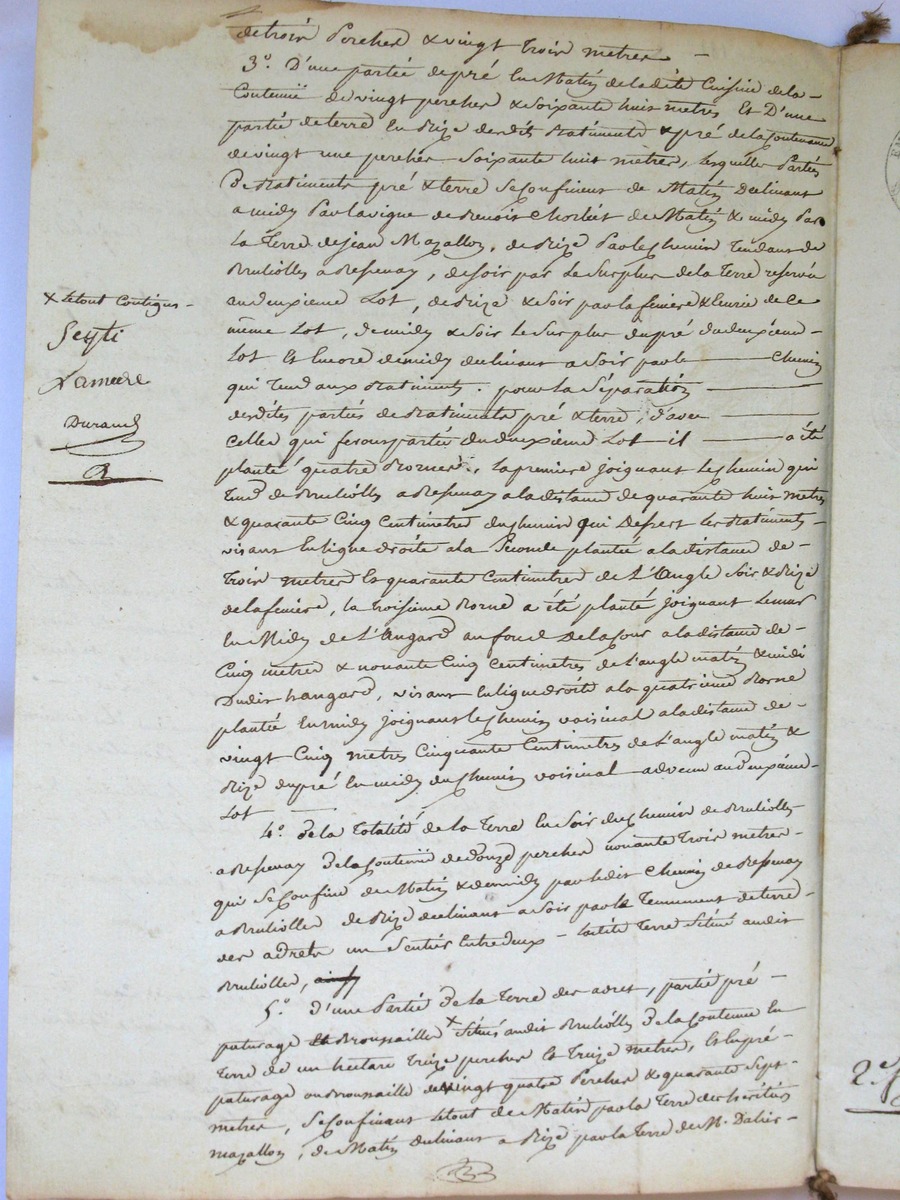 de trois Perches & vingt Trois metres —
3°. D'une partie de pré En Matin de la dite Cuisine de la
Contenue de vingt perches & soixante huit metres Et D'une
partie de terre En Bize desdits Batiments & pré de la Contenance
de vingt une perches Soixante huit metres, lesquelles Parties
De Batiments pré & terre Se Confinent de Matin declinant
a midy Par la vigne de Benoit Chorliet de Matin & midy Par
La Terre de Jean Mazallon, de Bize Par le Chemin Tendant de
Brulioles a Bessenay, de soir par Le Surplus de la Terre reservée
au deuxieme Lot, de Bize & soir par la feniere & Ecurie de Ce
même Lot, de midy & soir le surplus du pré du deuxieme
Lot Et Encore de midy declinant a soir par le Chemin
qui Tend aux Batiments. pour la Séparation
desdites parties de Batiments pré & terre, d'avec
Celles qui feront partie du deuxieme Lot il a été
planté quatre Bornes, la premiere joignant Le Chemin qui
Tend de Brulioles a Bessenay a la distance de quarante huit metres
& quarante Cinq Centimetres du Chemin qui Dessert les Batiments
visant En ligne droite a la Seconde plantée a la distance de
Trois metres Et quarante Centimetres de L'Angle Soir & Bize
de la feniere, la troisieme Borne a été planté joignant Le mur
En Midy de L'Angard au fond De la Cour a la distance de
Cinq metres & nonante Cinq Centimetres de L'angle matin & midi
Dudit hangard, visant En ligne droite a la quatrieme Borne
plantée En midy joignant le Chemin voisinal a la distance de
vingt Cinq metres Cinquante Centimetres de L'angle matin &
Bize du pré En midy du Chemin voisinal advenu au deuxieme
Lot
4°. De la Totalité de la Terre En Soir du Chemin de Brulioles
a Bessenay De la Contenue de Douze perches nonante Trois metres
qui Se Confine de Matin & de midy par le dit Chemin de Bessenay
a Brulioles de Bize declinant a soir par le Tenement de terre
des adrets un Sentier Entre deux — la dite Terre Située au dit
Brulioles,
5°. D'une Partie De la Terre des adret, partie pré
paturage Broussailles × Situés au dit Brulioles De la Contenue En
Terre de un hectare Treize perches Et Treize metres, Et En pré
paturage ou Broussaille de vingt quatre Perches & quarante Sept
metres, Se Confinant Le tout de Matin par la Terre des héritiers
mazallon, de Matin declinant a Bize par la Terre de M. Dalier
× Le tout Contigus
Lameere
Durand
2e.